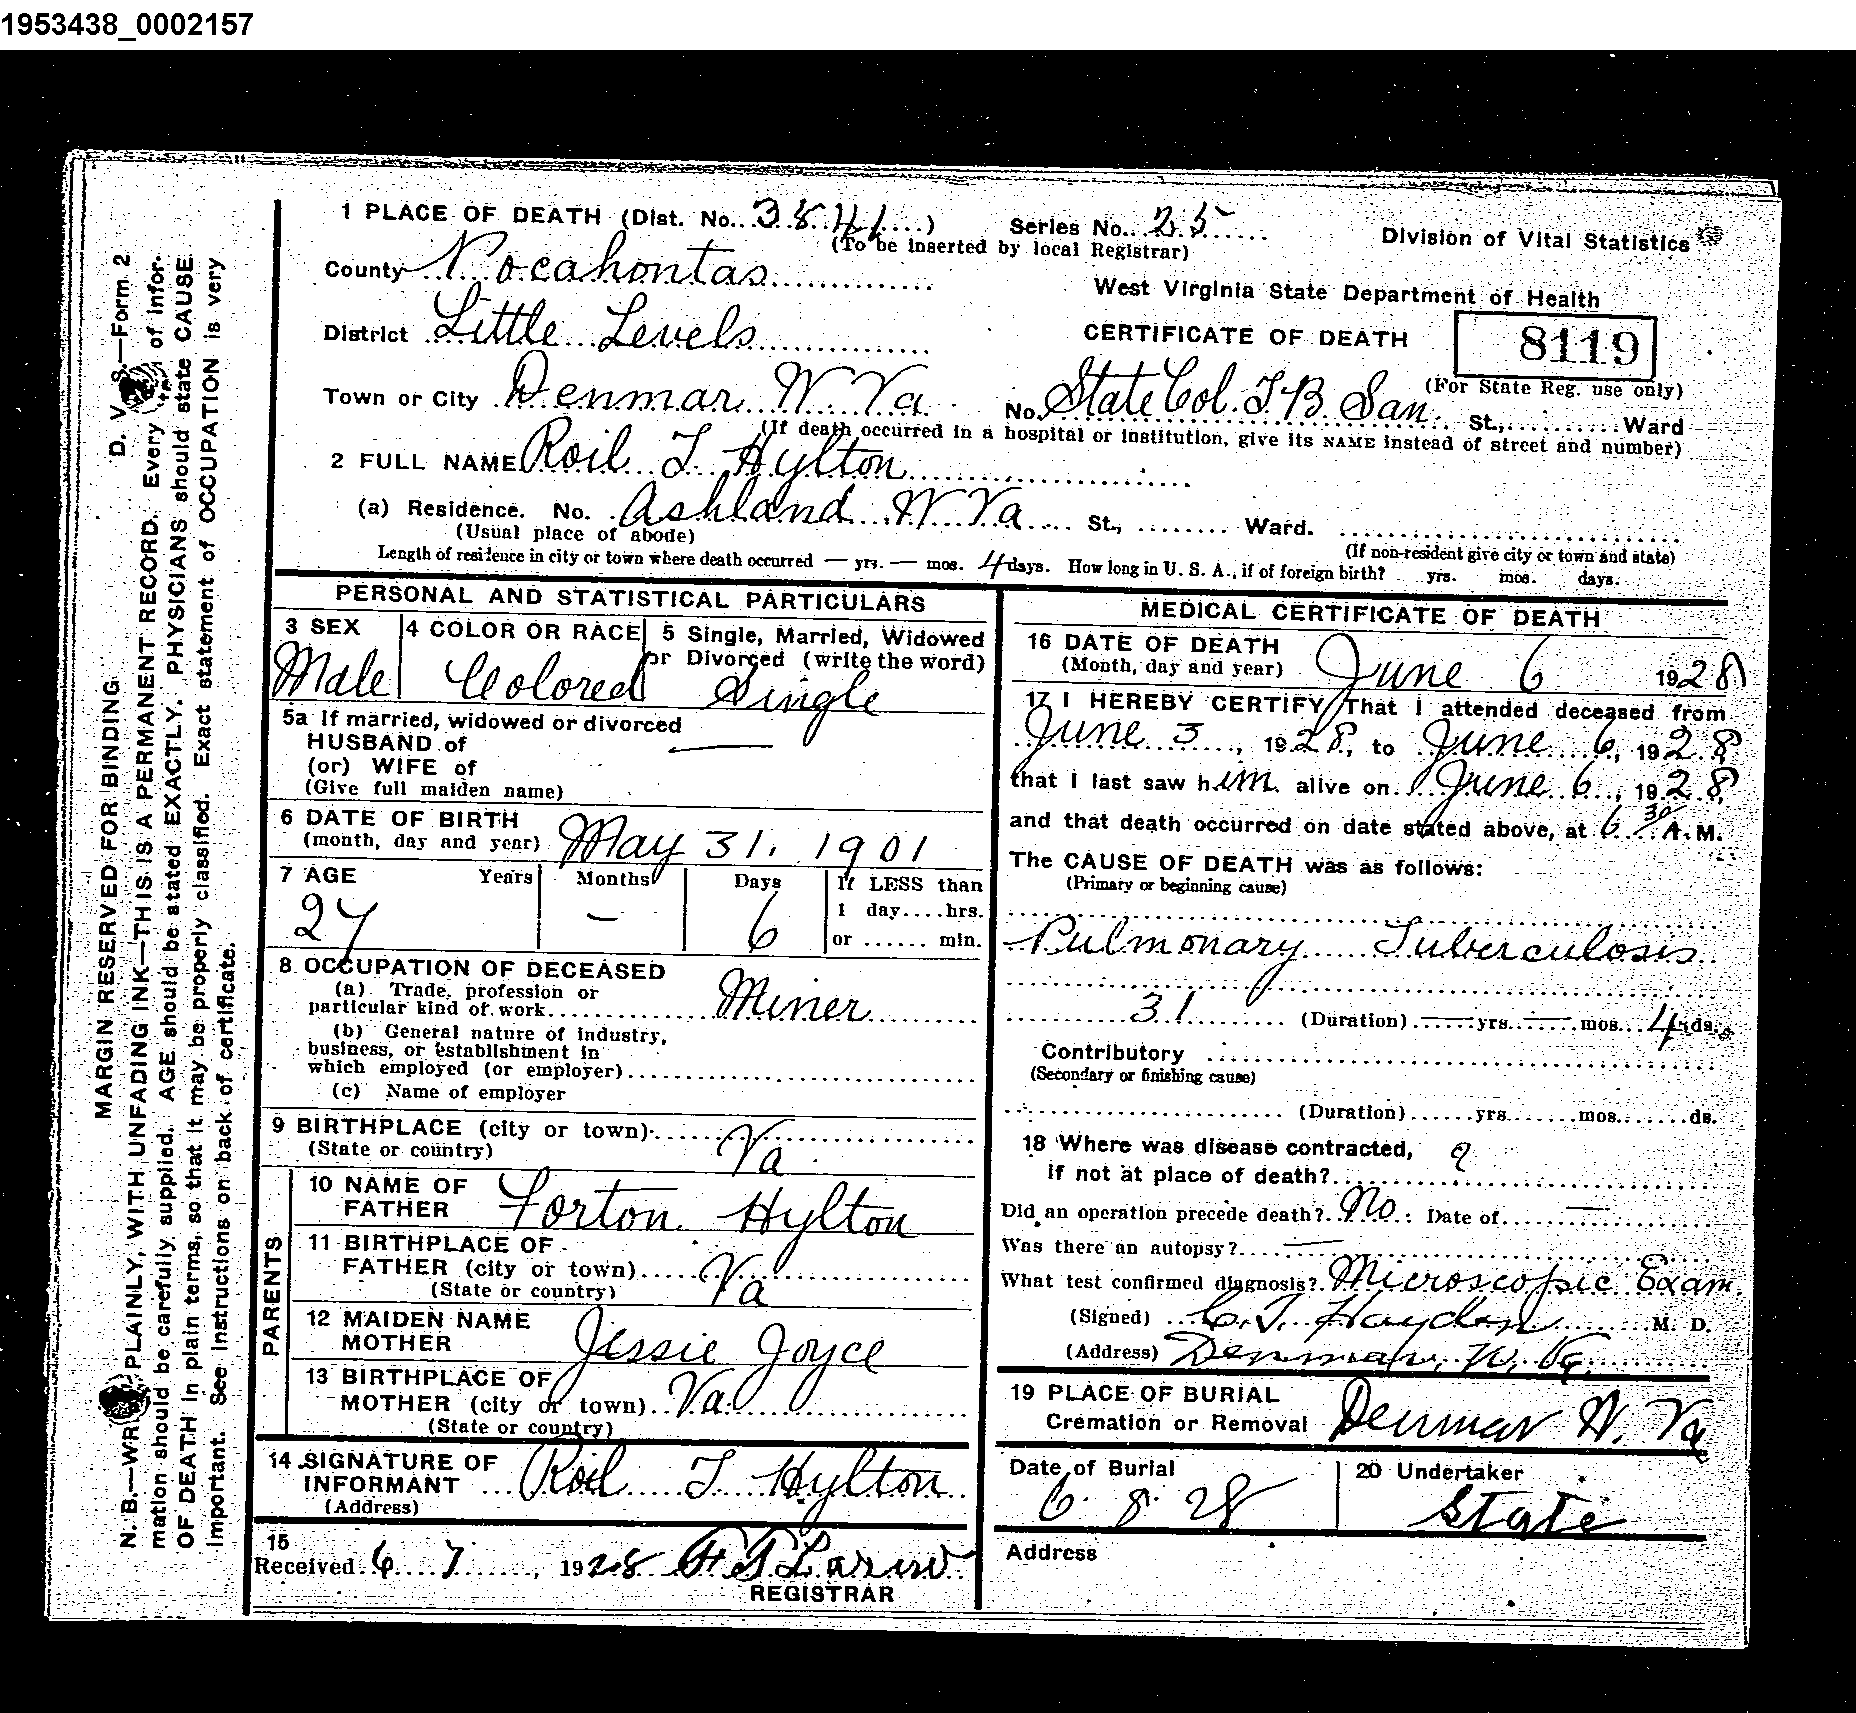 1953438_0002157
1 PLACE OF DEATH (Dist. No. 3841) Series No. 25 Division of Vital Statistics
(To be inserted by local Registrar)
County Pocahontas
West Virginia State Department of Health
District Little Levels
CERTIFICATE OF DEATH 8119
(For State Reg. use only)
Town or City Denmar W Va No. State Col. T B San. St., Ward
(If death occurred in a hospital or institution, give its NAME instead of street and number)
2 FULL NAME Roil T Hylton
(a) Residence. No. Ashland W Va St., Ward.
(Usual place of abode) (If non-resident give city or town and state)
Length of residence in city or town where death occurred — yrs. — mos. 4 days. How long in U. S. A., if of foreign birth? yrs. mos. days.
PERSONAL AND STATISTICAL PARTICULARS
3 SEX
Male
4 COLOR OR RACE
Colored
5 Single, Married, Widowed
or Divorced (write the word)
Single
5a If married, widowed or divorced
HUSBAND of —
(or) WIFE of
(Give full maiden name)
6 DATE OF BIRTH
(month, day and year) May 31, 1901
7 AGE Years Months Days If LESS than
1 day....hrs.
27 — 6
or ...... min.
8 OCCUPATION OF DECEASED
(a) Trade, profession or
particular kind of work Miner
(b) General nature of industry,
business, or establishment in
which employed (or employer)
(c) Name of employer
9 BIRTHPLACE (city or town)
(State or country) Va
PARENTS
10 NAME OF
FATHER Forton Hylton
11 BIRTHPLACE OF
FATHER (city or town) Va
(State or country)
12 MAIDEN NAME
MOTHER Jessie Joyce
13 BIRTHPLACE OF
MOTHER (city or town) Va
(State or country)
14 SIGNATURE OF
INFORMANT Roil T Hylton
(Address)
15
Received 6 7, 1928
REGISTRAR
MEDICAL CERTIFICATE OF DEATH
16 DATE OF DEATH
(Month, day and year) June 6 1928
17 I HEREBY CERTIFY That I attended deceased from
June 3, 1928, to June 6, 1928
that I last saw him alive on June 6, 1928,
and that death occurred on date stated above, at 6 30 A. M.
The CAUSE OF DEATH was as follows:
(Primary or beginning cause)
Pulmonary Tuberculosis
31 (Duration) — yrs. — mos. 4 ds.
Contributory
(Secondary or finishing cause)
(Duration) yrs. mos. ds.
18 Where was disease contracted,
if not at place of death? ?
Did an operation precede death? No. Date of —
Was there an autopsy? —
What test confirmed diagnosis? Microscopic Exam
(Signed) C. T. Hayden M. D.
(Address) Denmar, W. Va.
19 PLACE OF BURIAL
Cremation or Removal Denmar W. Va
Date of Burial
6. 8. 28
20 Undertaker
State
Address
D. V. S.—Form 2
MARGIN RESERVED FOR BINDING
N. B.—WRITE PLAINLY, WITH UNFADING INK—THIS IS A PERMANENT RECORD. Every item of infor-
mation should be carefully supplied. AGE should be stated EXACTLY. PHYSICIANS should state CAUSE
OF DEATH in plain terms, so that it may be properly classified. Exact statement of OCCUPATION is very
important. See instructions on back of certificate.